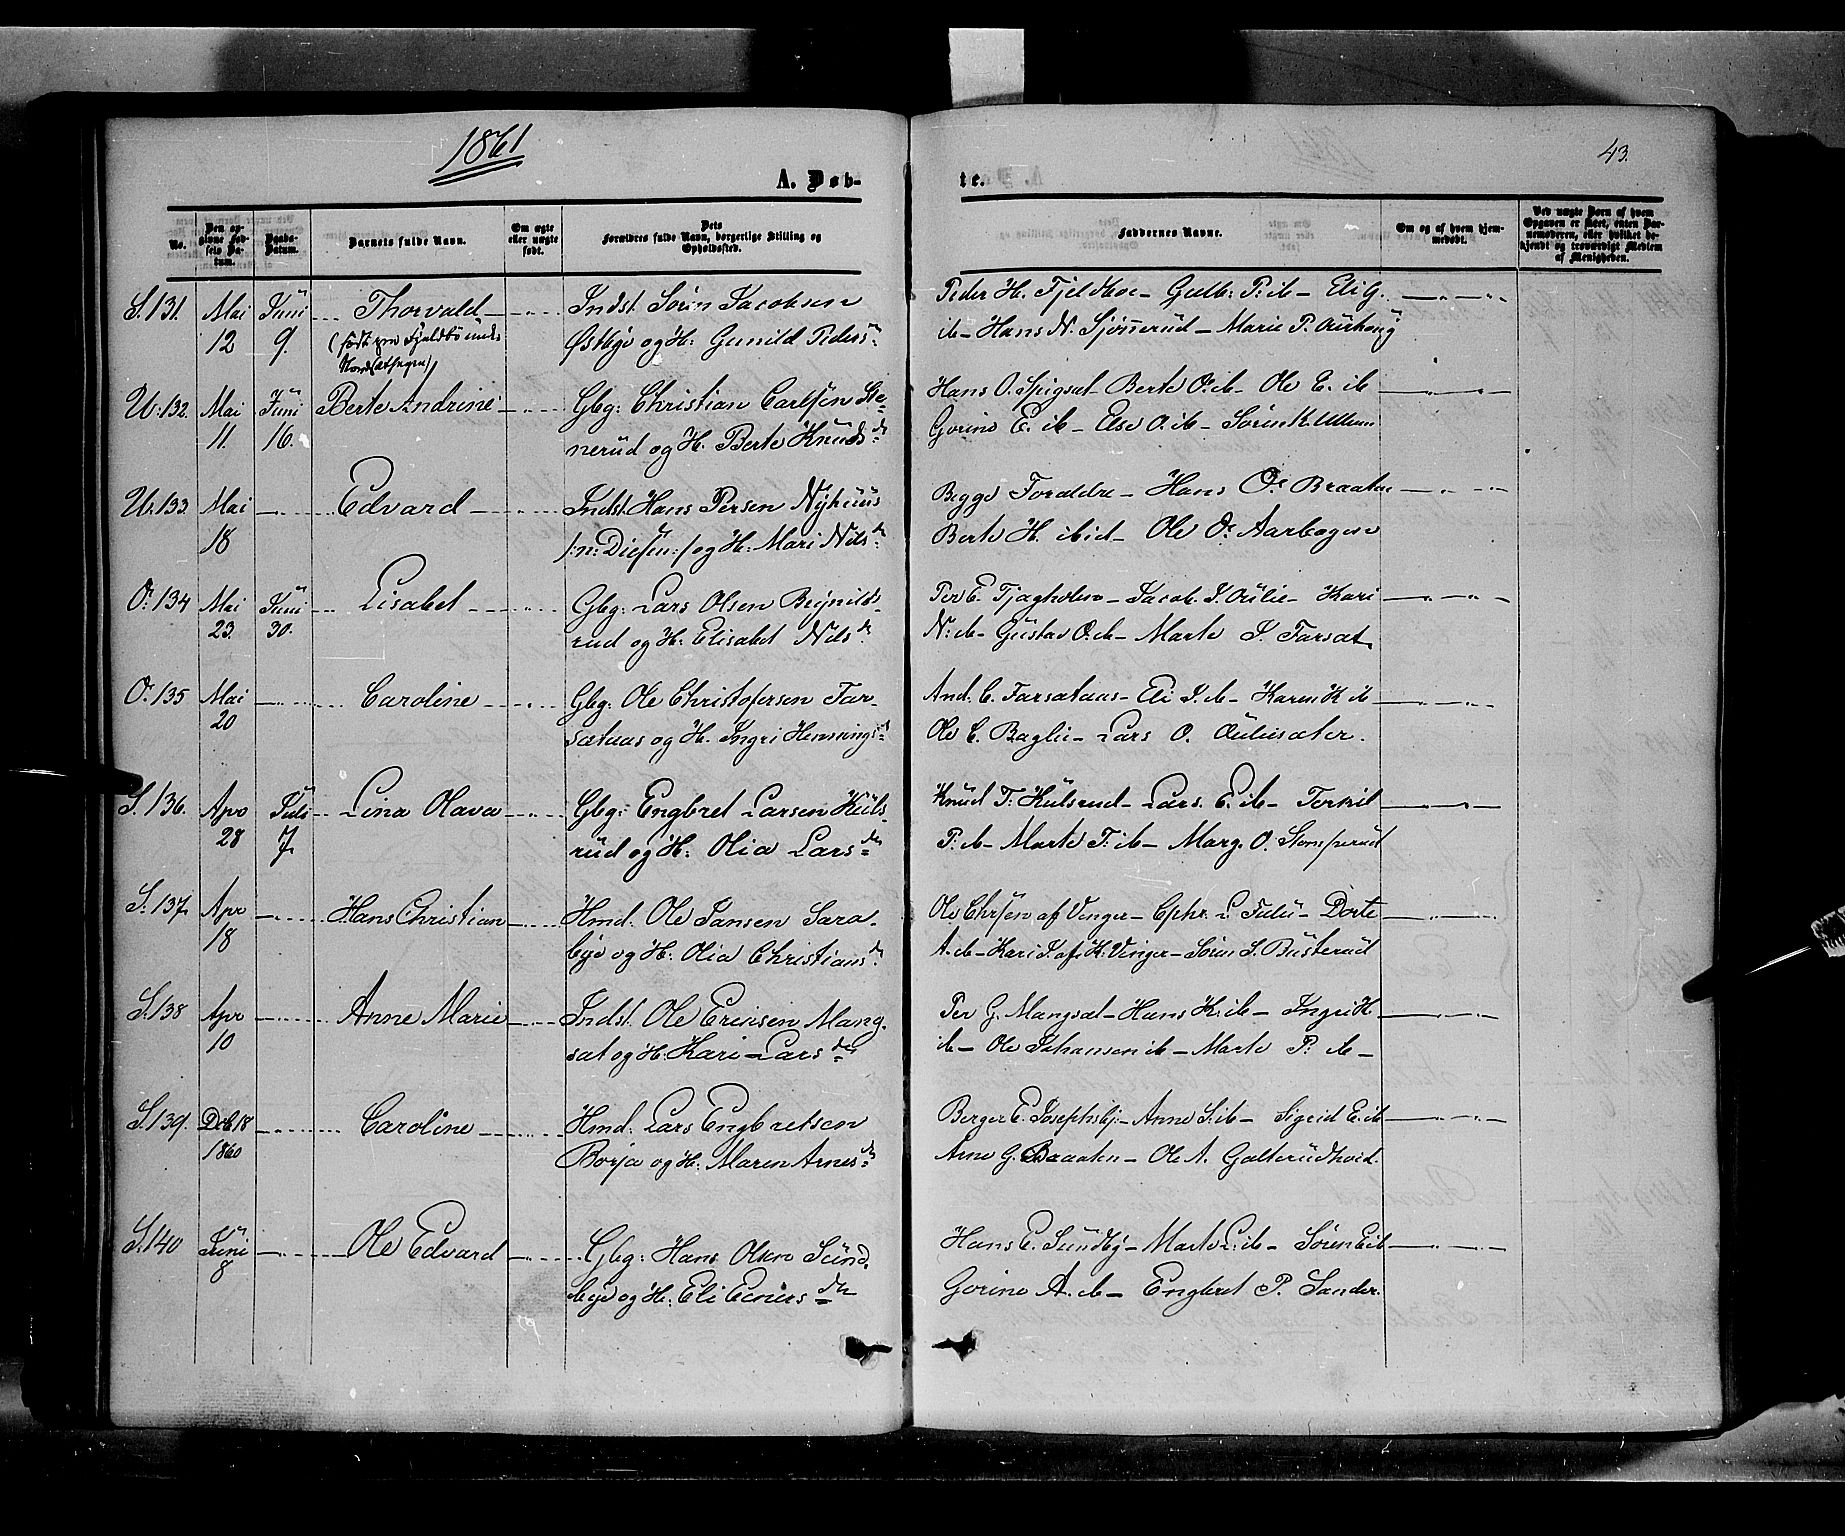 1861
43.
A. Døb-
te.
No.
Den op-
givne Fød-
sels Da-
tum.
Daabs-
Datum.
Barnets fulde Navn.
Om ægte
eller uægte
født.
Dets
Forældres fulde Navn, borgerlige Stilling og
Opholdssted.
Faddernes Navne.
Om og af hvem hjem-
medøbt.
Ved uægte Børn af hvem
Opgaven er skeet, enten Bar-
nemoderen, eller hvilket be-
kjendt og troværdigt Medlem
af Menigheden.
S. 131. Mai Juni Thorvald Indst. Sörin Jacobsen
12 9. (født paa Fjeldbö
Østbye og H: Gunild Peders
Peder H. Fjeldboe - Gulb: P: ib - Eli G.
ib - Hans N. Sjønnerud - Marie P. Aurhoug
U: 132. Mai Juni Berte Andrine Gbg: Christian Carlsen Ste-
11. 16. nerud og H. Berte Knuds dr
Hans O. Spigset - Berte O. ib - Ole E. ib
Gorine E. ib - Else O. ib - Sören K. Ullern
U: 133. Mai Edvard Indst. Hans Persen Nyhuus
18 /:n: Diesen:/ og H: Mari Nils dr
Begge Forældre - Hans O. Braaten
Berte H. ibid - Ole O. Aarbogen
O: 134 Mai Juni Lisabet Gbg: Lars Olsen Beynilds-
23. 30. rud og H: Elisabet Nils dr
Per E. Tjagholen - Jacob J. Aulie - Kari
N: ib - Gustav O. ib - Marte J. Farsæt
O. 135 Mai Caroline Gbg: Ole Christofersen Far-
20 sætaas og H. Ingri Hennings d
And. C. Farsætaas - Eli J. ib - Karen K. ib
Ole C. Baglie - Lars O. Auliesæter.
S. 136. Apr Juli Lina Olava Gbg: Engbret Larsen Kuls-
28 7. rud og H: Olia Lars dtr
Knud T: Kulsrud - Lars E. ib - Terkil
P: ib - Marte T: ib - Marg. O. Stomperud
S. 137. Apr Hans Christian Hmd. Ole Jansen Sara-
18 bye og H: Olia Christians d.
Ole Chrsen af Vinger - Cphr. L. Fulu - Dorte
A. ib - Kari J. af K. Vinger - Sören S. Busterud
S. 138 Apr Anne Marie Indst. Ole Ericsen Mang-
10 sat og H: Kari Lars dtr
Per G. Mangsat - Hans K: ib - Ingri H.
ib - Ole Johansen ib - Marte P: ib -
S. 139. Deb 18 Caroline Hmd: Lars Engbretsen
1860 Borja og H: Maren Arnes d
Berger E. Josephsbj - Anne S. ib - Sigrid E. ib
Arne G. Braaten - Ole A. Galterudhvid.
S. 140 Juni Ole Edvard Gbg: Hans Olsen Sund-
8 bye og H: Eli Einers dtr
Hans E. Sundby - Marte L. ib - Sören E. ib
Gorine A. ib - Engbret P. Sander.